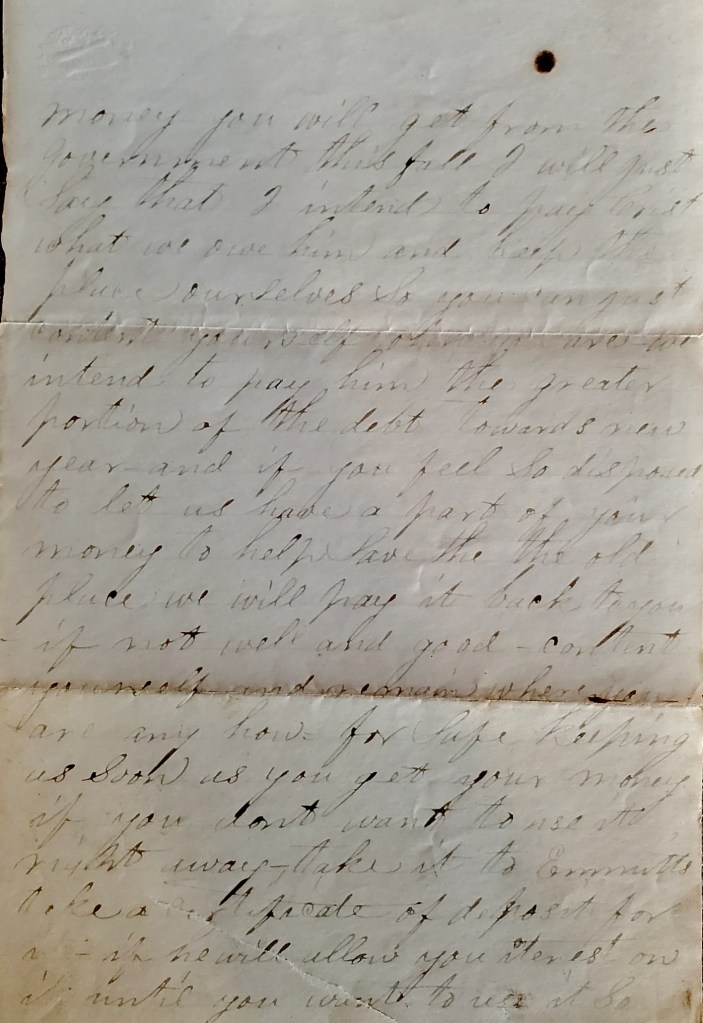 money you will get from the
government this fall I will just
say that I intend to pay
what we owe him and keep the
place ourselves so you can just
content yourself where you are we
intend to pay him the greater
portion of the debt towards new
year and if you feel so disposed
to let us have a part of your
money to help save the the old
place we will pay it back to you
if not well and good - content
yourself and remain where you
are any how - for safe keeping
as soon as you get your money
if you dont want to use it
right away take it to Emmitts
take a certificate of deposit for
it - if he will allow you iterest on
it until you want to use it so